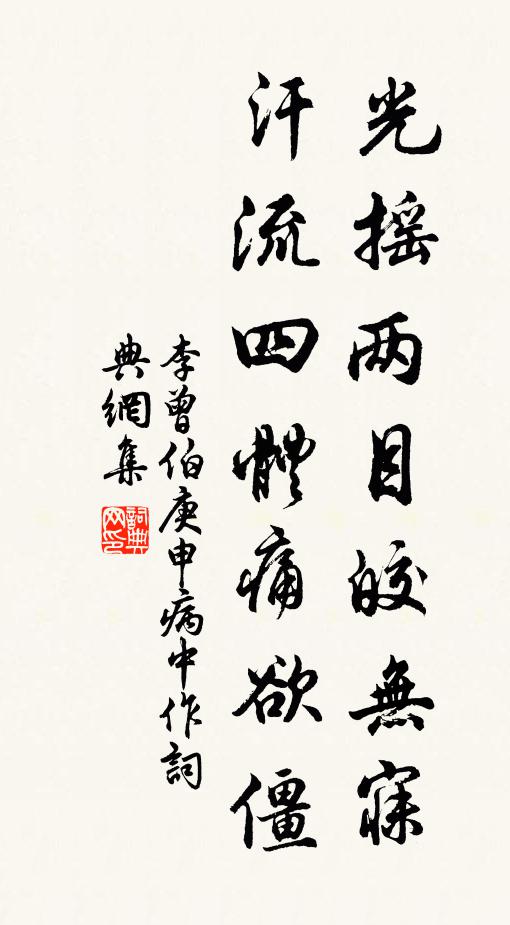 光摇两目皎無寐
汗流四體痛欲僵
李曾伯庚申病中作詞
典網集
詞典網印